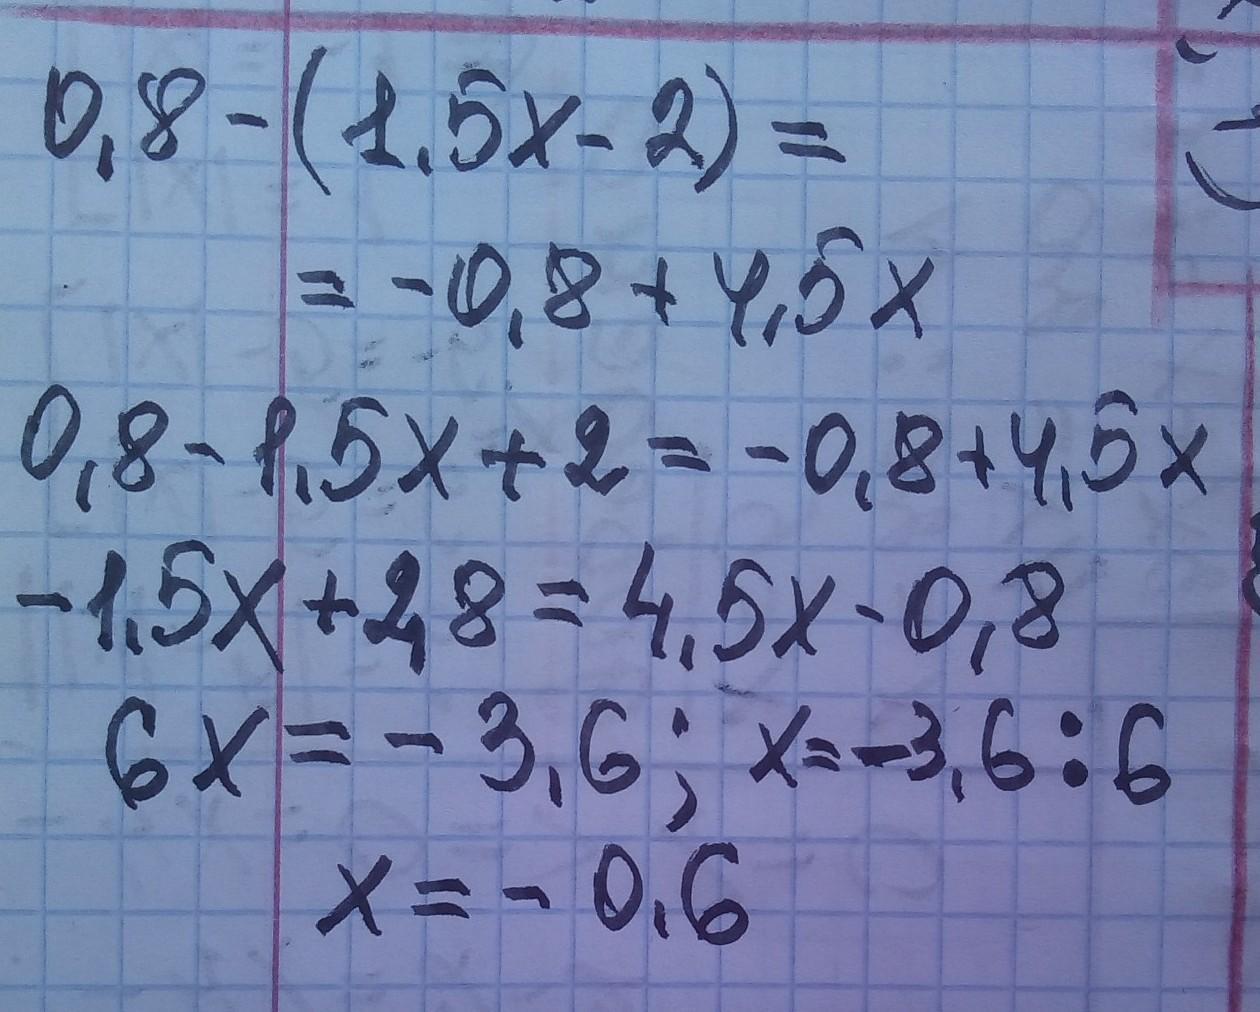 0,8 - (1,5x - 2) =
= -0,8 + 4,5x
0,8 - 1,5x + 2 = -0,8 + 4,5x
-1,5x + 2,8 = 4,5x - 0,8
6x = -3,6; x = -3,6 : 6
x = -0,6